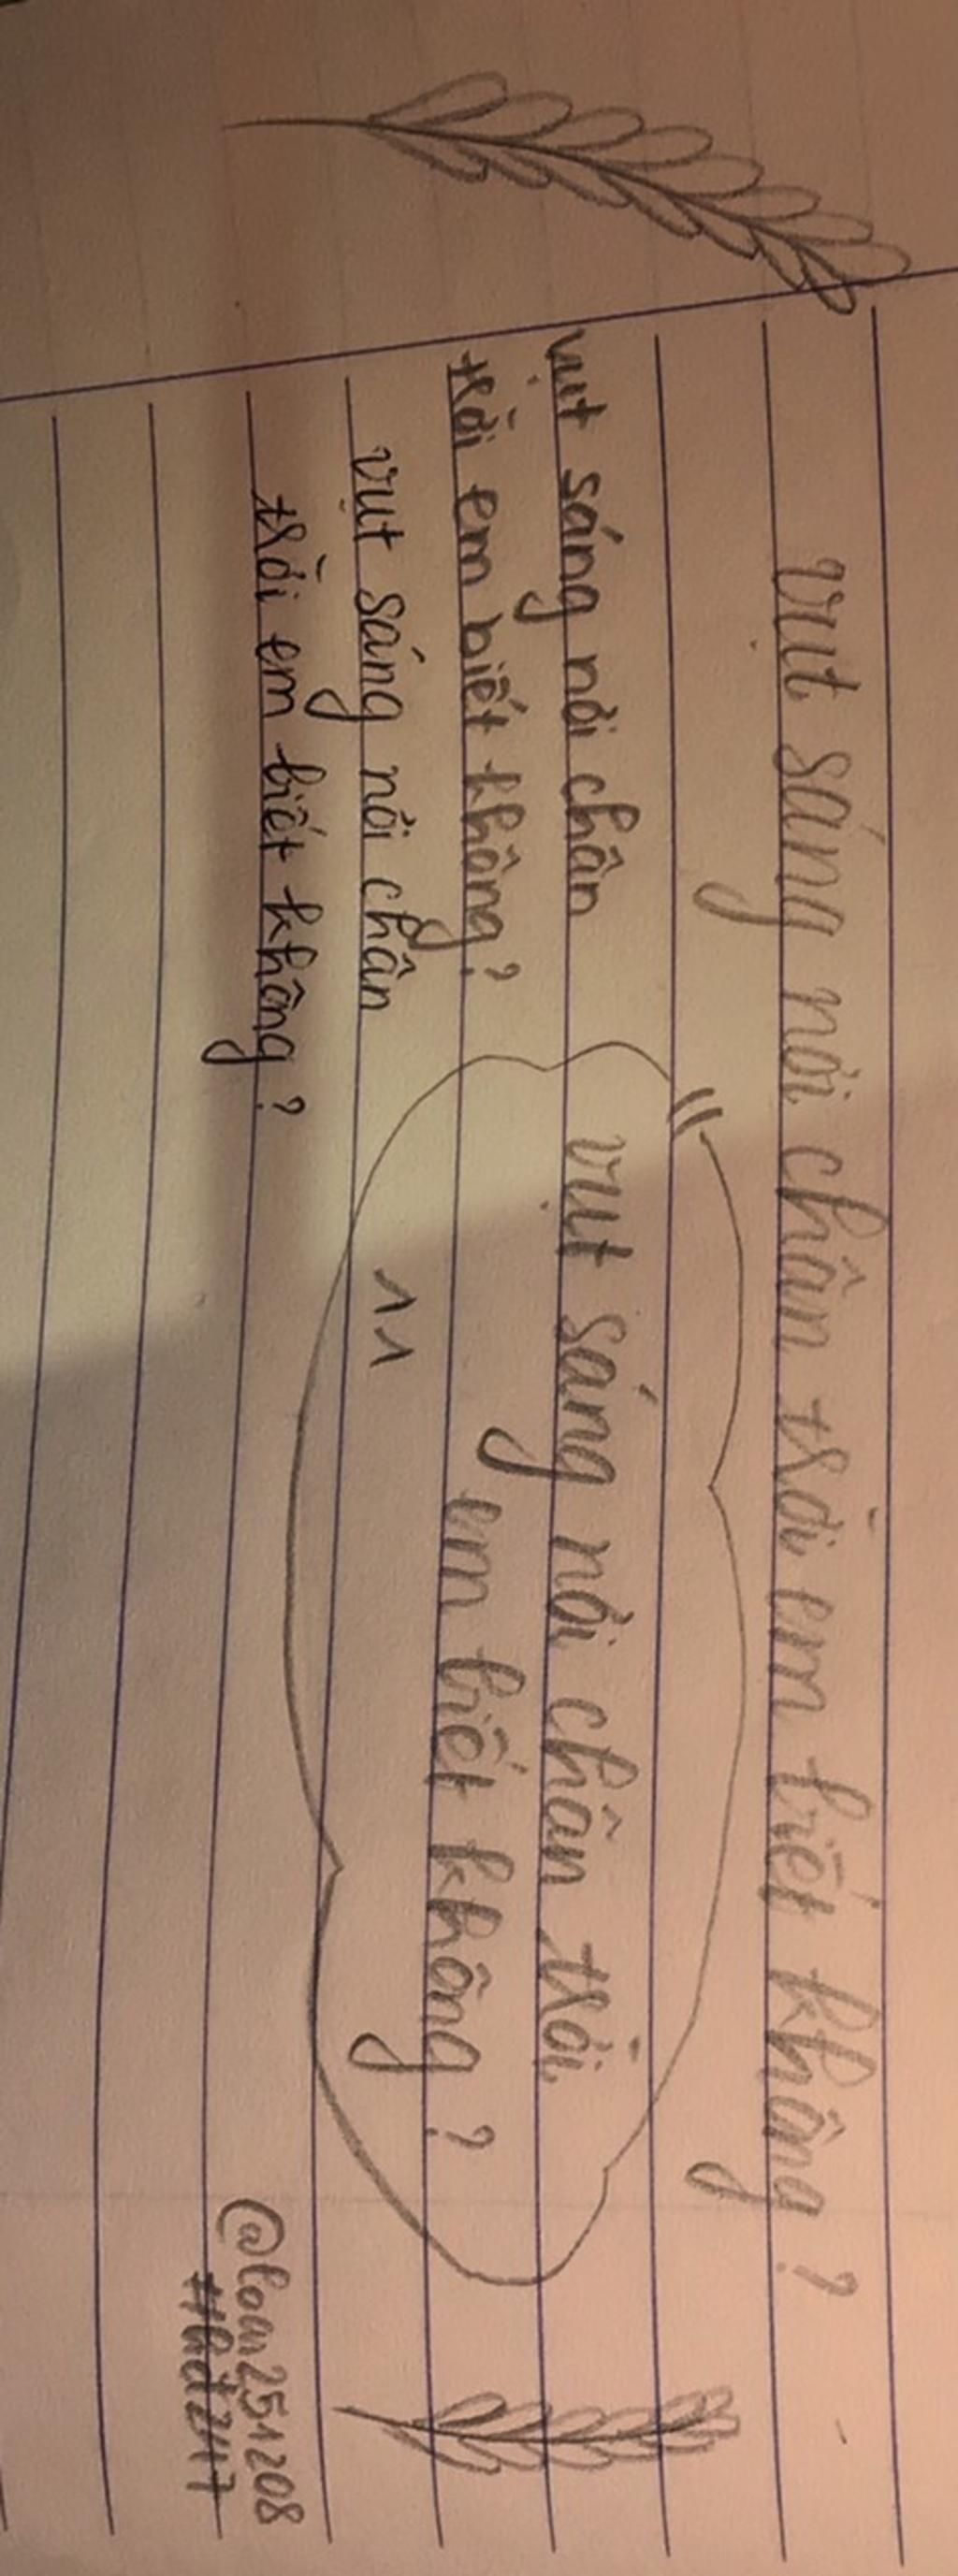 vụt sáng nơi chân trời em biết không?
vụt sáng nơi chân
trời em biết không?
vụt sáng nơi chân
trời em biết không?
"
vụt sáng nơi chân trời
em biết không?
@loan251208